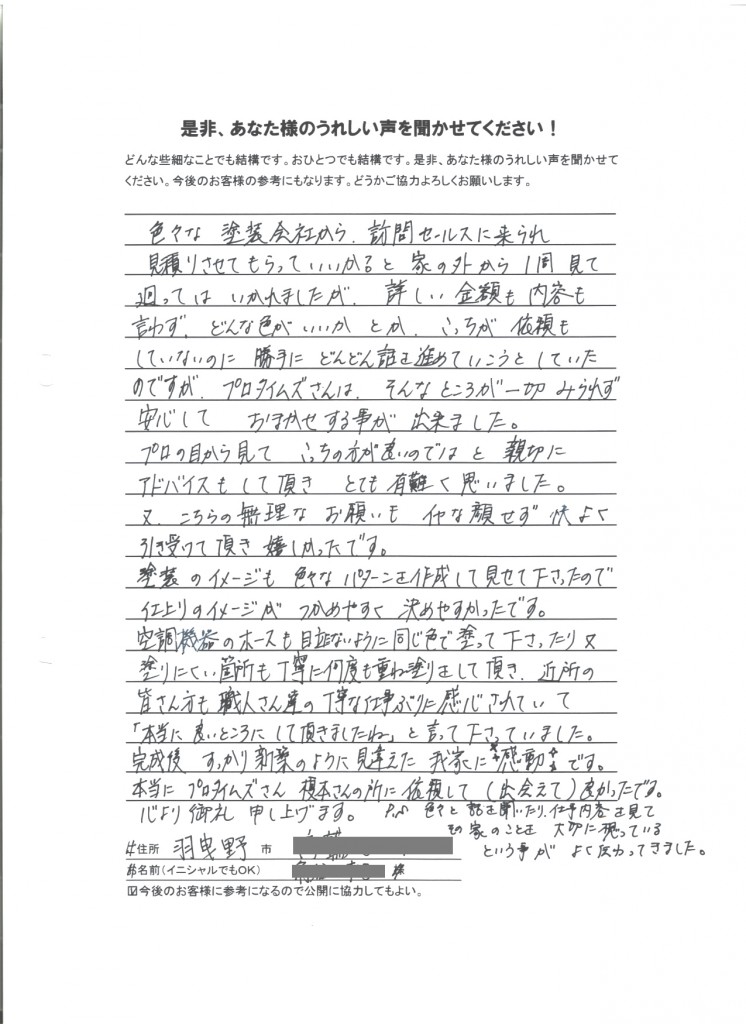 是非、あなた様のうれしい声を聞かせてください！
どんな些細なことでも結構です。おひとつでも結構です。是非、あなた様のうれしい声を聞かせて
ください。今後のお客様の参考にもなります。どうかご協力よろしくお願いします。
色々な 塗装会社から、訪問セールスに来られ
見積りさせてもらっていいかると 家の外から 1周 見て
廻っては いかれましたが、詳しい 金額も 内容も
言わず、どんな色がいいか とか、こっちが 依頼も
していないのに 勝手に どんどん話を進めていこうとしていた
のですが、プロタイムズさんは、そんなところが一切 みられず
安心して おまかせする事が 出来ました。
プロの目から見て こっちの方が良いのではと 親切に
アドバイスもして頂き とても有難く思いました。
又、こちらの無理な お願いも イヤな顔せず 快よく
引き受けて頂き 嬉しかったです。
塗装のイメージも 色々なパターンを作成して見せて下さったので
仕上りのイメージが つかめやすく 決めやすかったです。
空調機器のホースも目立ないように同じ色で塗って下さったり又
塗りにくい箇所も丁寧に何度も重ね塗りをして頂き、近所の
皆さん方も 職人さん達の 丁寧な仕事ぶりに感心されていて
「本当に良いところにして頂きましたね」と言って下さっていました。
完成後 すっかり新築のように見違えた 我家に 感動 です。
本当に プロタイムズさん 榎本さんの所に依頼して（出会えて）良かったです。
心より御礼 申し上げます。
色々と 話を聞いたり、仕事内容を見て
その家のことを 大切に 思っている
という事が よく伝わってきました。
住所 羽曳野 市
名前（イニシャルでもOK） 様
☑今後のお客様に参考になるので公開に協力してもよい。